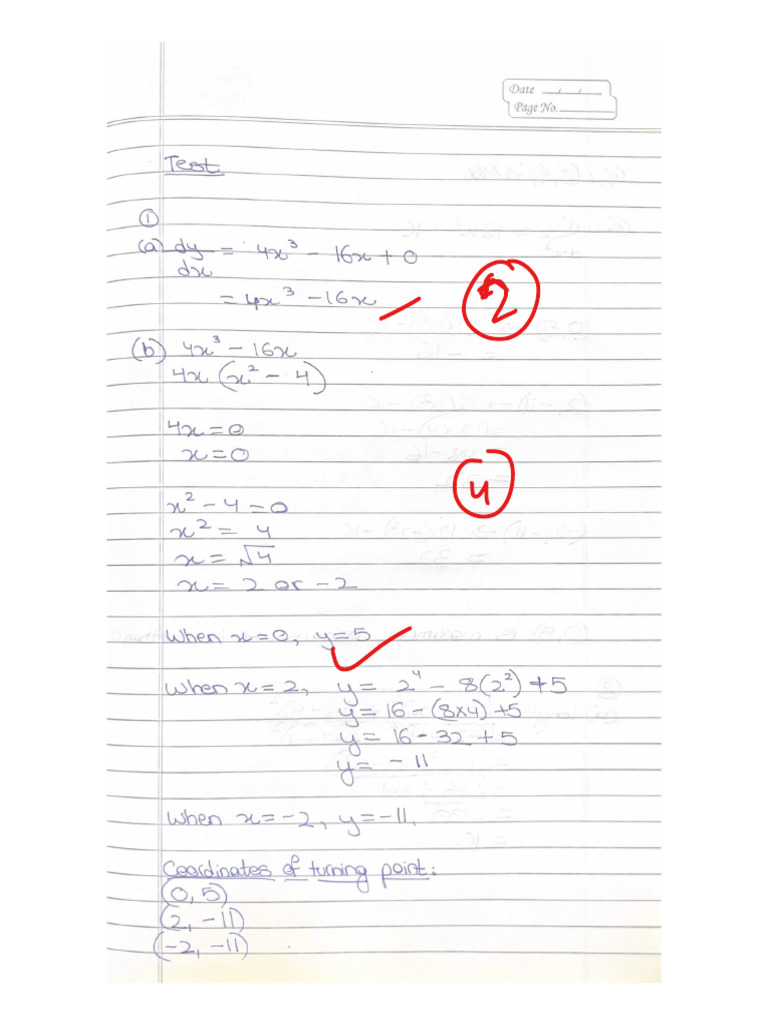 Date __/__/__
Page No.
Test
①
(a) dy/dx = 4x³ - 16x + 0
= 4x³ - 16x
2
(b) 4x³ - 16x
4x (x² - 4)
4x = 0
x = 0
4
x² - 4 = 0
x² = 4
x = √4
x = 2 or -2
When x = 0, y = 5
When x = 2, y = 2⁴ - 8(2²) + 5
y = 16 - (8×4) + 5
y = 16 - 32 + 5
y = -11
When x = -2, y = -11.
Coordinates of turning point:
(0, 5)
(2, -11)
(-2, -11)